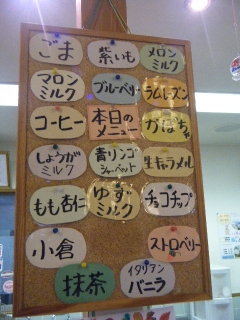 ごま
紫いも
メロン
ミルク
マロン
ミルク
ブルーベリー
ラムレーズン
コーヒー
本日の
メニュー
かぼちゃ
しょうが
ミルク
青リンゴ
シャーベット
生キャラメル
もも杏仁
ゆず
ミルク
チョコチップ
小倉
ストロベリー
抹茶
イタリアン
バニラ